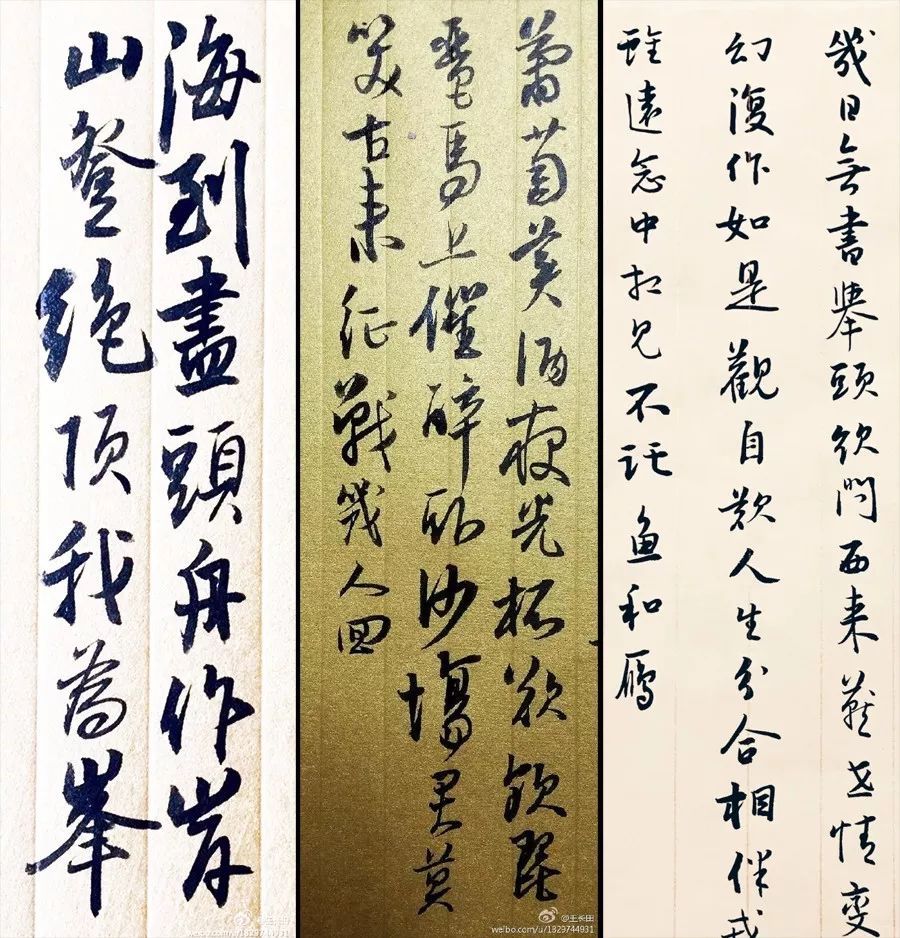 海到盡頭舟作岸
山登絶顶我為峯
@王长田
weibo.com/u/1829744931
葡萄美酒夜光杯欲飲琵
琶馬上催醉卧沙場君莫
笑古来征戰幾人回
@王长田
weibo.com/u/1829744931
幾日無書舉頭欲問西来燕世情变
幻復作如是觀自歎人生分合相伴戎
雖遠念中相見不託鱼和雁